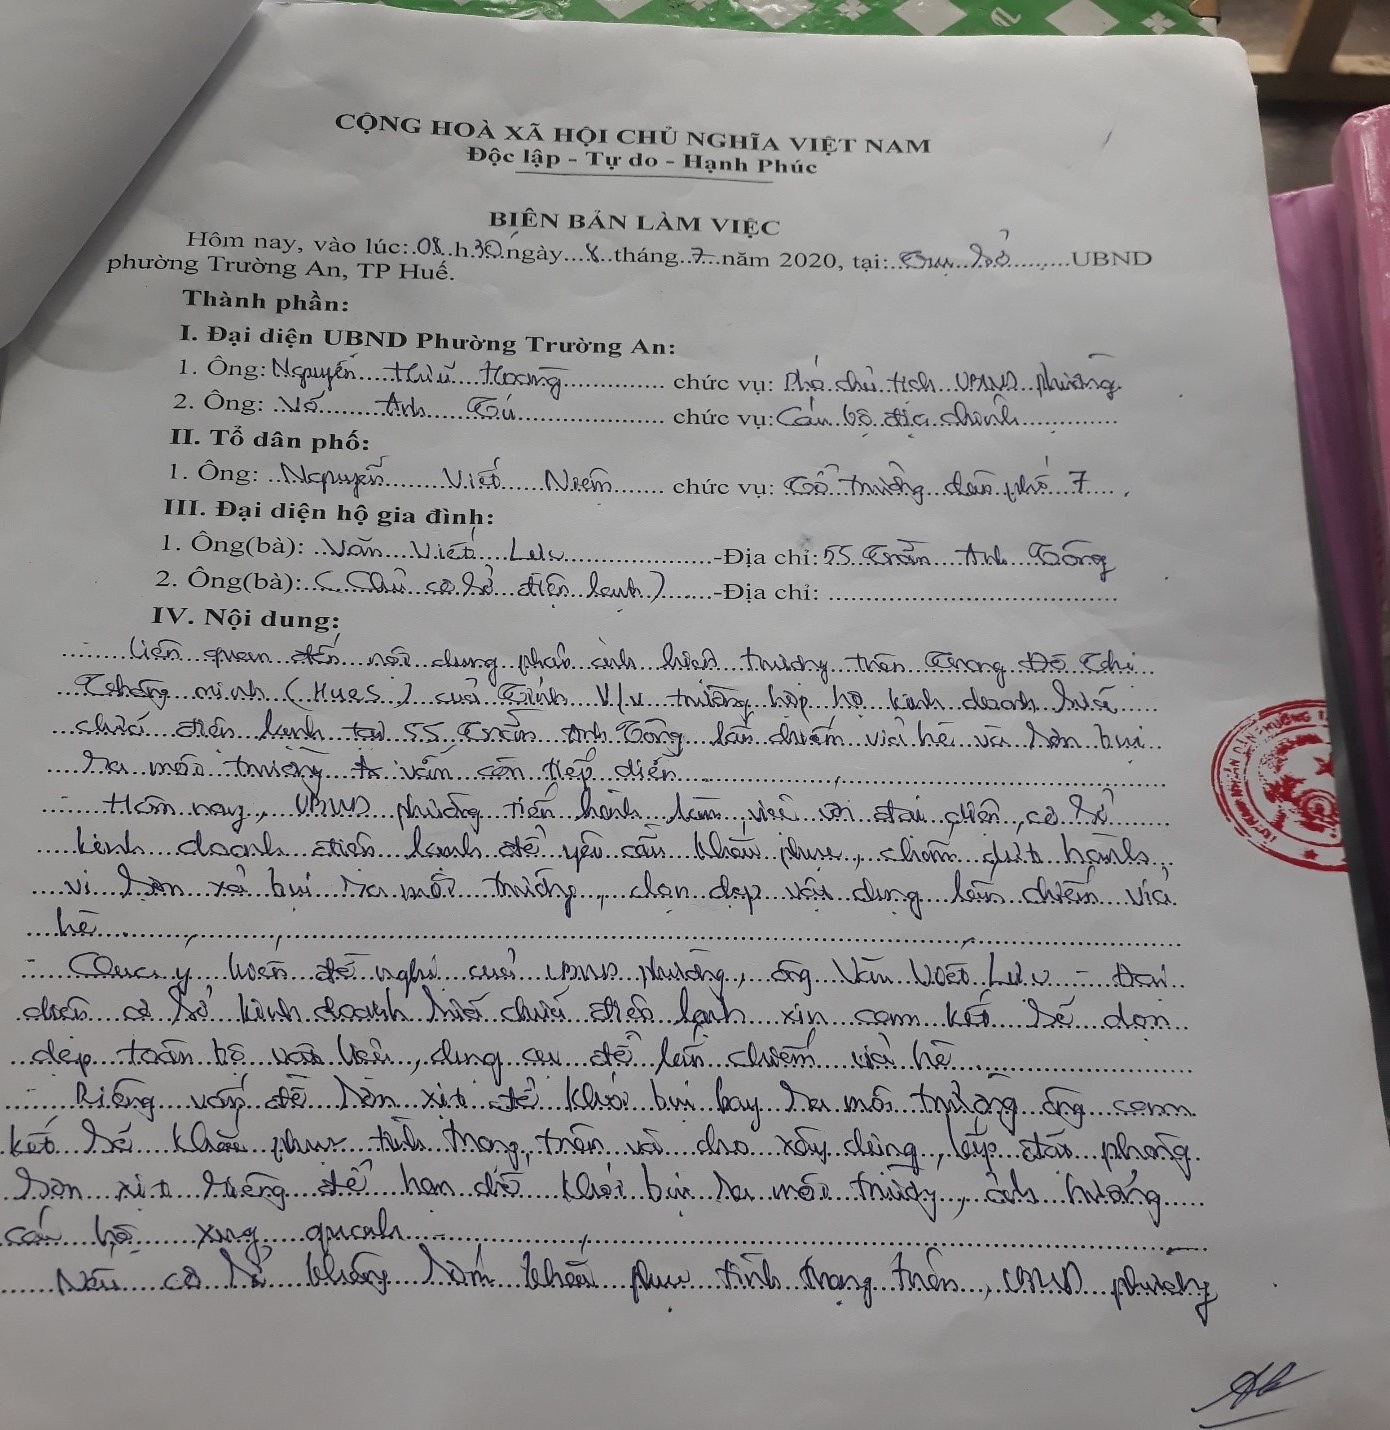 CỘNG HOÀ XÃ HỘI CHỦ NGHĨA VIỆT NAM
Độc lập - Tự do - Hạnh Phúc
BIÊN BẢN LÀM VIỆC
Hôm nay, vào lúc: 08 h 30 ngày 8 tháng 7 năm 2020, tại: Trụ Sở UBND
phường Trường An, TP Huế.
Thành phần:
I. Đại diện UBND Phường Trường An:
1. Ông: Nguyễn Hữu Hoàng chức vụ: Phó chủ tịch UBND phường
2. Ông: Võ Anh Tú chức vụ: Cán bộ địa chính
II. Tổ dân phố:
1. Ông: Nguyễn Viết Niệm chức vụ: Tổ trưởng dân phố 7
III. Đại diện hộ gia đình:
1. Ông(bà): Văn Viết Lưu -Địa chỉ: 55 Trần Anh Tông
2. Ông(bà): (Chủ cơ sở điện lạnh) -Địa chỉ:
IV. Nội dung:
- Liên quan đến nội dung phản ánh hiện trường trên Trang Đô Thị
Thông minh (HueS) của Tỉnh V/v trường hợp hộ kinh doanh sửa
chữa điện lạnh tại 55 Trần Anh Tông lấn chiếm vỉa hè và hàn bụi
ra môi trường vẫn còn tiếp diễn
- Hôm nay, UBND phường tiến hành làm việc với đại diện cơ sở
kinh doanh điện lạnh để yêu cầu khắc phục, chấm dứt hành
vi hàn xả bụi ra môi trường, dọn dẹp vật dụng lấn chiếm vỉa
hè
- Qua ý kiến đề nghị của UBND phường, ông Văn Viết Lưu - Đại
diện cơ sở kinh doanh sửa chữa điện lạnh xin cam kết sẽ dọn
dẹp toàn bộ vật liệu, dụng cụ để lấn chiếm vỉa hè
- Riêng vấn đề hàn xịt để khói bụi bay ra môi trường ông cam
kết sẽ khắc phục tình trạng trên và cho xây dựng, lắp đặt phòng
hàn xịt riêng để hạn chế khói bụi ra môi trường, ảnh hưởng
các hộ xung quanh
Nếu cơ sở không sớm khắc phục tình trạng trên, UBND phường